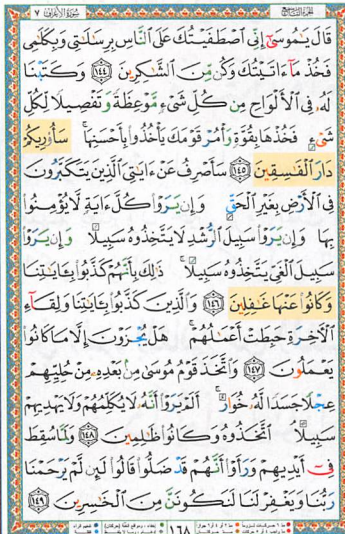 الجزء التاسع سورة الأعراف ٧
قَالَ يَٰمُوسَىٰٓ إِنِّي ٱصۡطَفَيۡتُكَ عَلَى ٱلنَّاسِ بِرِسَٰلَٰتِي وَبِكَلَٰمِي
فَخُذۡ مَآ ءَاتَيۡتُكَ وَكُن مِّنَ ٱلشَّٰكِرِينَ ١٤٤ وَكَتَبۡنَا
لَهُۥ فِي ٱلۡأَلۡوَاحِ مِن كُلِّ شَيۡءٖ مَّوۡعِظَةٗ وَتَفۡصِيلٗا لِّكُلِّ
شَيۡءٖ فَخُذۡهَا بِقُوَّةٖ وَأۡمُرۡ قَوۡمَكَ يَأۡخُذُواْ بِأَحۡسَنِهَاۚ سَأُوْرِيكُمۡ
دَارَ ٱلۡفَٰسِقِينَ ١٤٥ سَأَصۡرِفُ عَنۡ ءَايَٰتِيَ ٱلَّذِينَ يَتَكَبَّرُونَ
فِي ٱلۡأَرۡضِ بِغَيۡرِ ٱلۡحَقِّ وَإِن يَرَوۡاْ كُلَّ ءَايَةٖ لَّا يُؤۡمِنُواْ
بِهَا وَإِن يَرَوۡاْ سَبِيلَ ٱلرُّشۡدِ لَا يَتَّخِذُوهُ سَبِيلٗا وَإِن يَرَوۡاْ
سَبِيلَ ٱلۡغَيِّ يَتَّخِذُوهُ سَبِيلٗاۚ ذَٰلِكَ بِأَنَّهُمۡ كَذَّبُواْ بِـَٔايَٰتِنَا
وَكَانُواْ عَنۡهَا غَٰفِلِينَ ١٤٦ وَٱلَّذِينَ كَذَّبُواْ بِـَٔايَٰتِنَا وَلِقَآءِ
ٱلۡأٓخِرَةِ حَبِطَتۡ أَعۡمَٰلُهُمۡۚ هَلۡ يُجۡزَوۡنَ إِلَّا مَا كَانُواْ
يَعۡمَلُونَ ١٤٧ وَٱتَّخَذَ قَوۡمُ مُوسَىٰ مِنۢ بَعۡدِهِۦ مِنۡ حُلِيِّهِمۡ
عِجۡلٗا جَسَدٗا لَّهُۥ خُوَارٌۚ أَلَمۡ يَرَوۡاْ أَنَّهُۥ لَا يُكَلِّمُهُمۡ وَلَا يَهۡدِيهِمۡ
سَبِيلًاۘ ٱتَّخَذُوهُ وَكَانُواْ ظَٰلِمِينَ ١٤٨ وَلَمَّا سُقِطَ
فِيٓ أَيۡدِيهِمۡ وَرَأَوۡاْ أَنَّهُمۡ قَدۡ ضَلُّواْ قَالُواْ لَئِن لَّمۡ يَرۡحَمۡنَا
رَبُّنَا وَيَغۡفِرۡ لَنَا لَنَكُونَنَّ مِنَ ٱلۡخَٰسِرِينَ ١٤٩
١٦٨